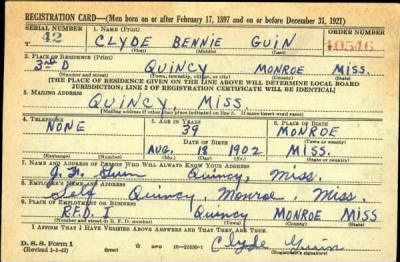 REGISTRATION CARD—(Men born on or after February 17, 1897 and on or before December 31, 1921)
SERIAL NUMBER 1. NAME (Print) ORDER NUMBER
42 CLYDE BENNIE GUIN 10546
(First) (Middle) (Last)
2. PLACE OF RESIDENCE (Print)
3rd D QUINCY MONROE MISS.
(Number and street) (Town, township, village, or city) (County) (State)
[THE PLACE OF RESIDENCE GIVEN ON THE LINE ABOVE WILL DETERMINE LOCAL BOARD
JURISDICTION; LINE 2 OF REGISTRATION CERTIFICATE WILL BE IDENTICAL]
3. MAILING ADDRESS
QUINCY, MISS.
[Mailing address if other than place indicated on line 2. If same insert word same]
4. TELEPHONE 5. AGE IN YEARS 6. PLACE OF BIRTH
NONE 39 MONROE
DATE OF BIRTH (Town or county)
AUG. 18 1902 MISS.
(Exchange) (Number) (Mo.) (Day) (Yr.) (State or country)
7. NAME AND ADDRESS OF PERSON WHO WILL ALWAYS KNOW YOUR ADDRESS
Guin Quincy, Miss.
8. EMPLOYER'S NAME AND ADDRESS
Self Quincy, Monroe, Miss.
9. PLACE OF EMPLOYMENT OR BUSINESS
R.F.D. 1 Quincy MONROE MISS
(Number and street or R. F. D. number) (Town) (County) (State)
I AFFIRM THAT I HAVE VERIFIED ABOVE ANSWERS AND THAT THEY ARE TRUE.
D. S. S. Form 1 Clyde Guin
(Revised 1-1-42) (over) (Registrant's signature)